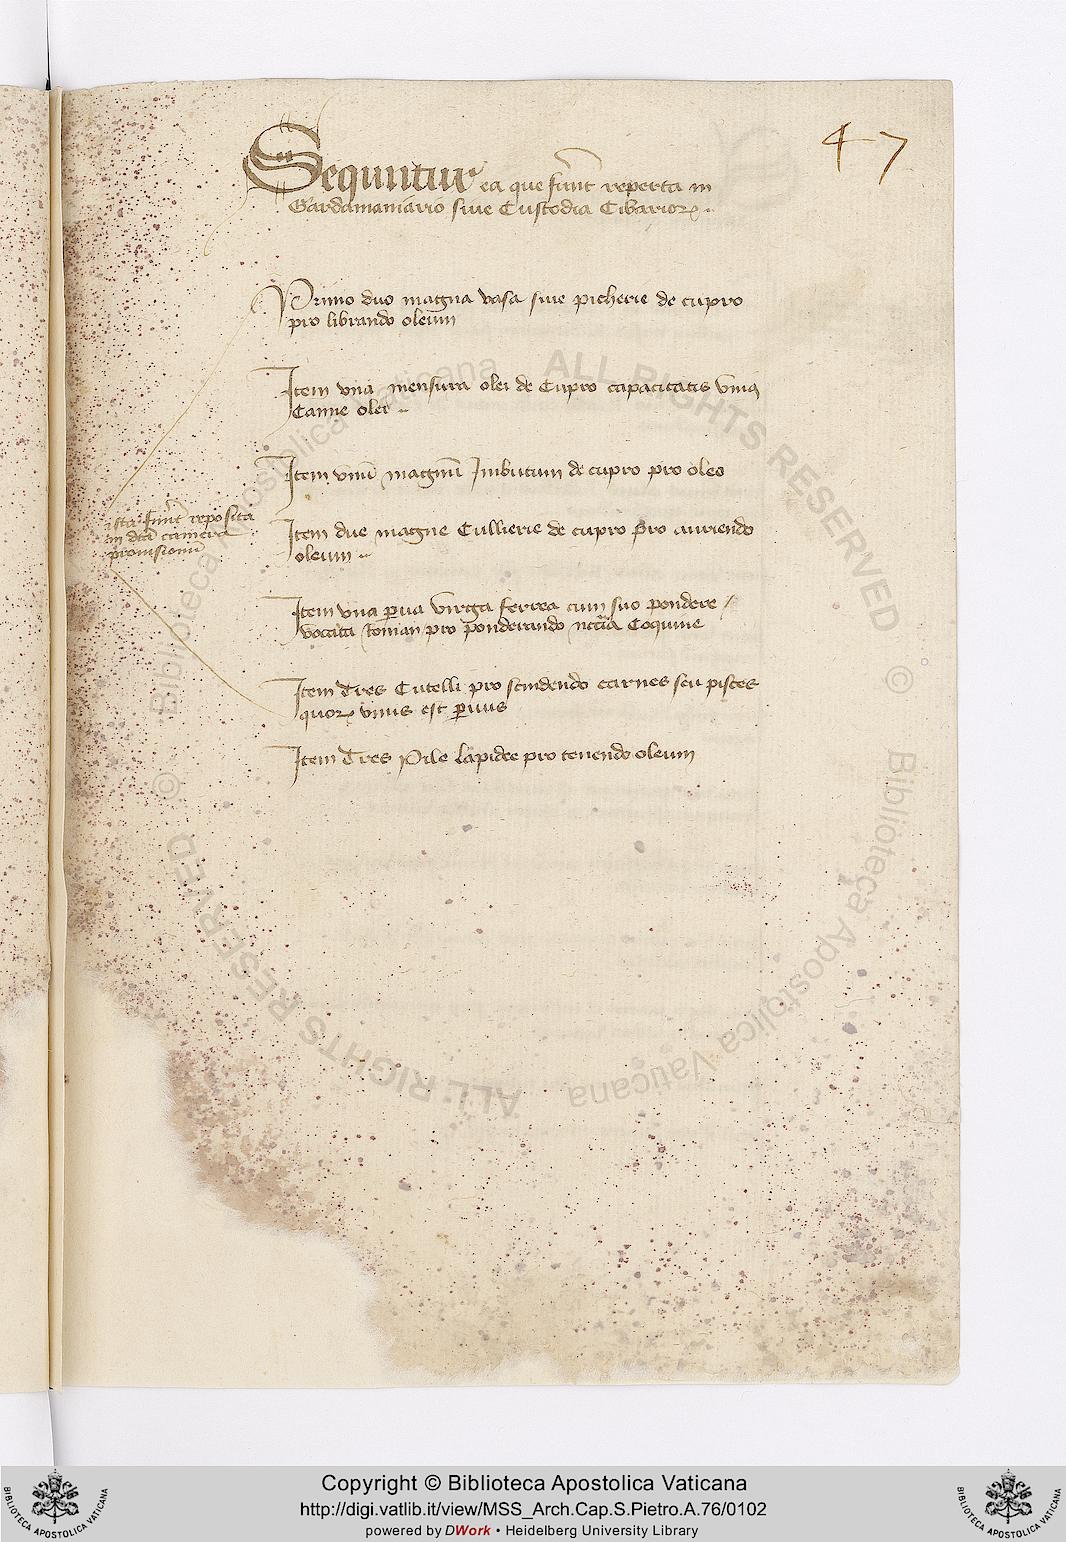 47
Sequntur ea que sunt reperta in
Gardamaniario sive Custodia Cibarior.
Primo duo magna vasa sive picherie de cupro
pro librando oleum
Item vna mensura olei de Cupro capacitatis vnius
Canne olei
Item vnu magnu Imbutum de cupro pro oleo
Item due magne Cullierie de cupro pro auriendo
oleum
ista sunt reposita
in dca camera
prouisionu
Item vna pua virga ferrea cum suo pondere /
vocata Roman pro ponderando Coquine
Item Tres Cutelli pro scindendo carnes seu pisces
quor vnus est puus
Item Tres Pile lapidee pro tenendo oleum
© Biblioteca Apostolica Vaticana ALL RIGHTS RESERVED
© Biblioteca Apostolica Vaticana ALL RIGHTS RESERVED
Copyright © Biblioteca Apostolica Vaticana
http://digi.vatlib.it/view/MSS_Arch.Cap.S.Pietro.A.76/0102
powered by DWork • Heidelberg University Library
BIBLIOTECA APOSTOLICA VATICANA
BIBLIOTECA APOSTOLICA VATICANA